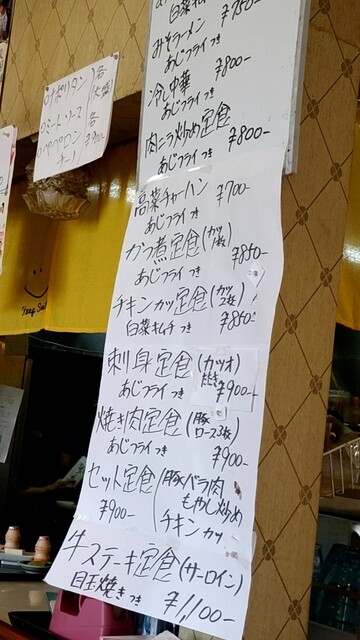 白菜キムチ ¥750-
みそラーメン
あじフライつき ¥800-
冷し中華
あじフライつき
肉ニラ炒め定食 ¥800-
あじフライつき
高菜チャーハン ¥700-
あじフライつき
カツ煮定食(カツ1枚) ¥850-
あじフライつき
チキンカツ定食(カツ2枚) ¥850-
白菜キムチつき
刺身定食(カツオたたき) ¥900-
あじフライつき
焼き肉定食(豚ロース3枚) ¥900-
あじフライつき
セット定食(豚バラ肉
もやし炒め
チキンカツ
¥900-
牛ステーキ定食(サーロイン)
目玉焼きつき ¥1,100-
ナポリタン
ミートソース
ペペロンチーノ
各¥900
各大盛
Keep Smile